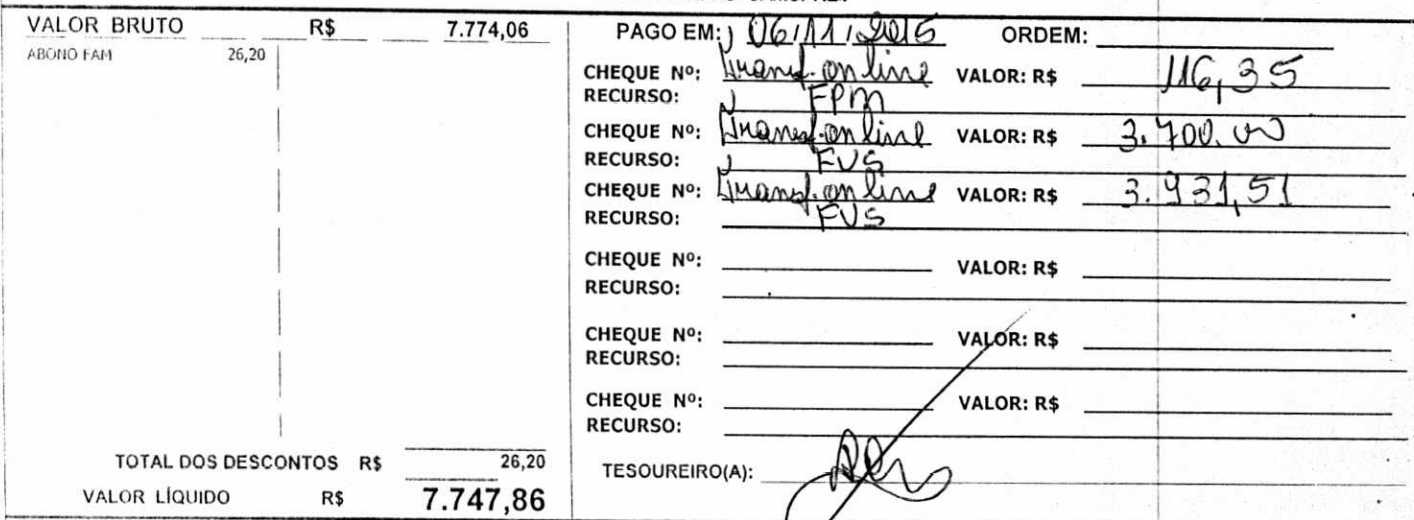 VALOR BRUTO R$ 7.774,06
ABONO FAM 26,20
TOTAL DOS DESCONTOS R$ 26,20
VALOR LÍQUIDO R$ 7.747,86
PAGO EM: 06/11/2015 ORDEM:
CHEQUE Nº: Transf. on line VALOR: R$ 116,35
RECURSO: FPM
CHEQUE Nº: Transf. on line VALOR: R$ 3.700,00
RECURSO: FVS
CHEQUE Nº: Transf. on line VALOR: R$ 3.931,51
RECURSO: FVS
CHEQUE Nº: VALOR: R$
RECURSO:
CHEQUE Nº: VALOR: R$
RECURSO:
CHEQUE Nº: VALOR: R$
RECURSO:
TESOUREIRO(A):